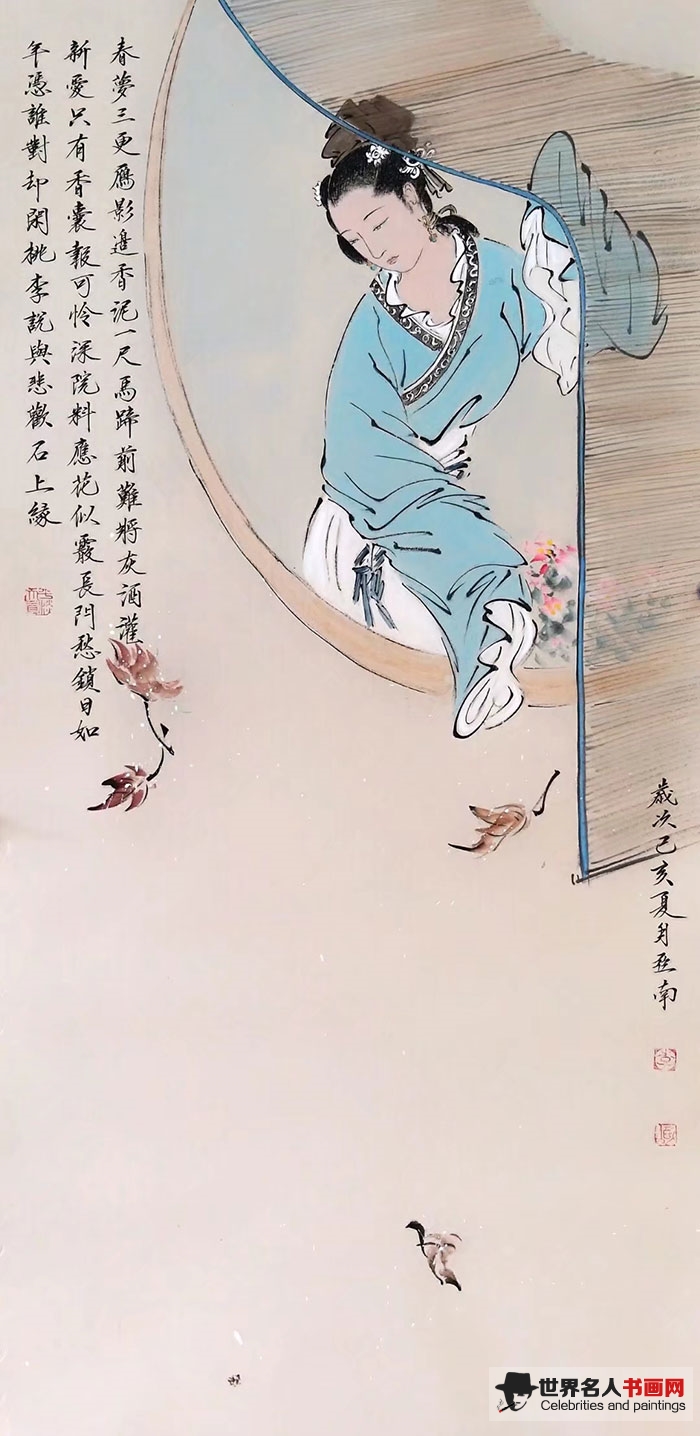 春夢三更鴈影邊香泥一尺馬蹄前難將灰酒灌
新愛只有香囊報可憐深院料應花似霰長門愁鎖日如
年憑誰對却閑桃李說與悲歡石上緣
歲次己亥夏月亞南
世界名人书画网
Celebrities and paintings